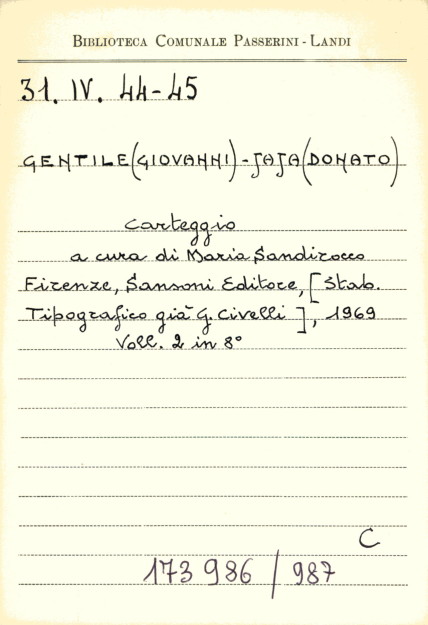 BIBLIOTECA COMUNALE PASSERINI - LANDI
31. IV. 44-45
GENTILE (GIOVANNI) - JAJA (DONATO)
Carteggio
a cura di Maria Sandirocco
Firenze, Sansoni Editore, [Stab.
Tipografico già G. Civelli], 1969
Voll. 2 in 8°
C
173 986 / 987